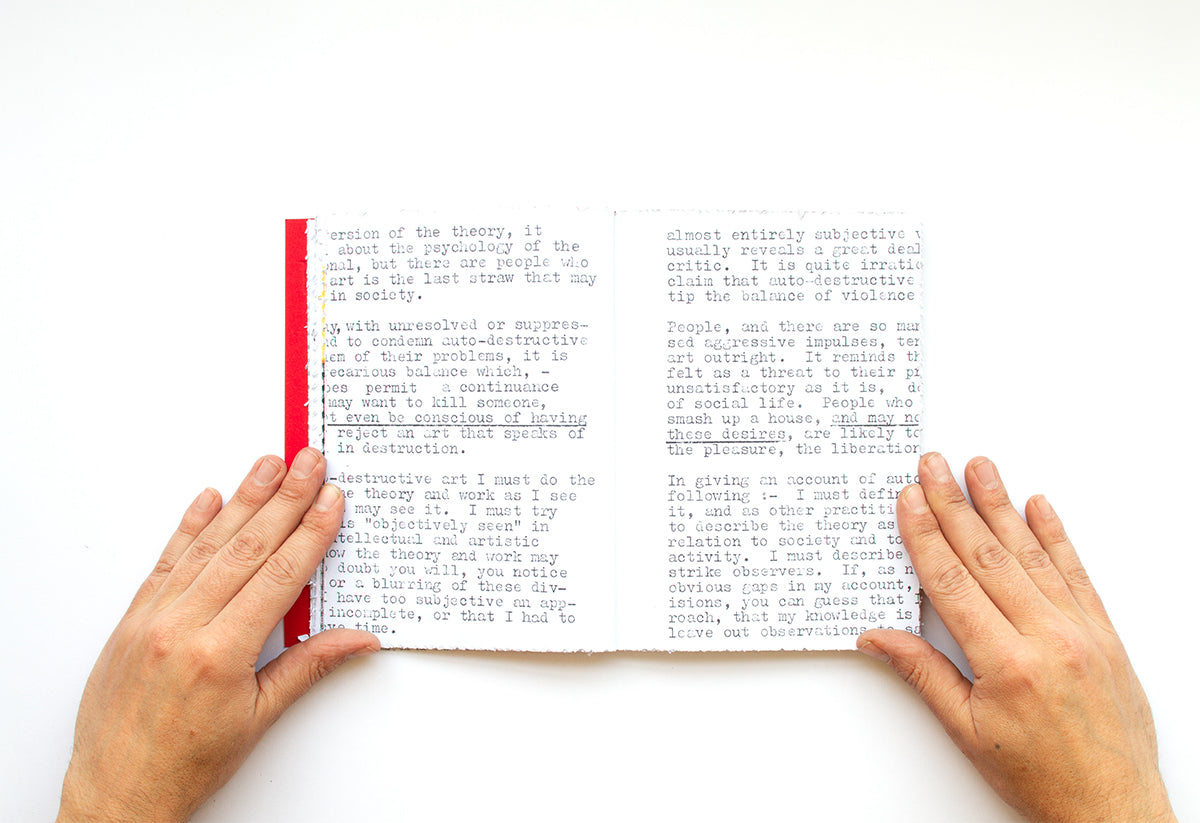 ersion of the theory, it
about the psychology of the
nal, but there are people who
art is the last straw that may
in society.
y, with unresolved or suppres-
d to condemn auto-destructive
em of their problems, it is
ecarious balance which, -
es permit a continuance
may want to kill someone,
t even be conscious of having
reject an art that speaks of
in destruction.
-destructive art I must do the
e theory and work as I see
may see it. I must try
is "objectively seen" in
tellectual and artistic
ow the theory and work may
doubt you will, you notice
or a blurring of these div-
have too subjective an app-
incomplete, or that I had to
time.
almost entirely subjective
usually reveals a great deal
critic. It is quite irratio
claim that auto-destructive
tip the balance of violence
People, and there are so man
sed aggressive impulses, ten
art outright. It reminds th
felt as a threat to their p
unsatisfactory as it is, d
of social life. People who
smash up a house, and may no
these desires, are likely to
the pleasure, the liberation
In giving an account of auto
following :- I must defin
it, and as other practiti
to describe the theory as
relation to society and to
activity. I must describe
strike observers. If, as n
obvious gaps in my account,
isions, you can guess that I
roach, that my knowledge is
leave out observations to sa